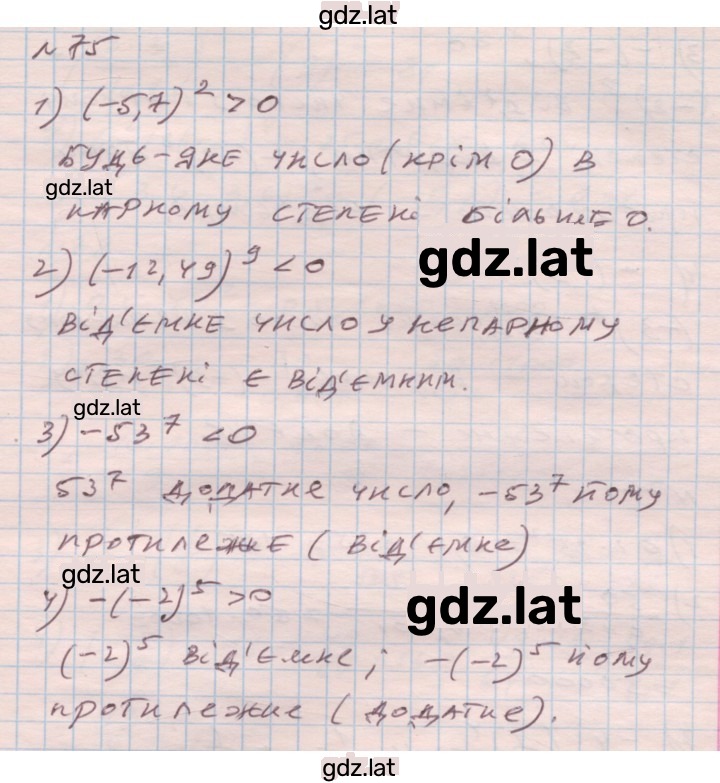 gdz.lat
№75
1) (-5,7)² > 0
Будь-яке число (крім 0) в
gdz.lat
парному степені більше 0.
gdz.lat
2) (-12,49)⁹ < 0
Від'ємне число у непарному
степені є від'ємним.
gdz.lat
3) -53⁷ < 0
53⁷ додатне число, -53⁷ йому
протилежне (від'ємне)
gdz.lat
4) -(-2)⁵ > 0
gdz.lat
(-2)⁵ від'ємне; -(-2)⁵ йому
протилежне (додатне).
gdz.lat